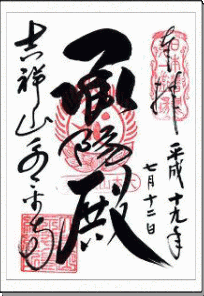 奉拝
平成十九年
七月十二日
承陽殿
吉祥山永平寺